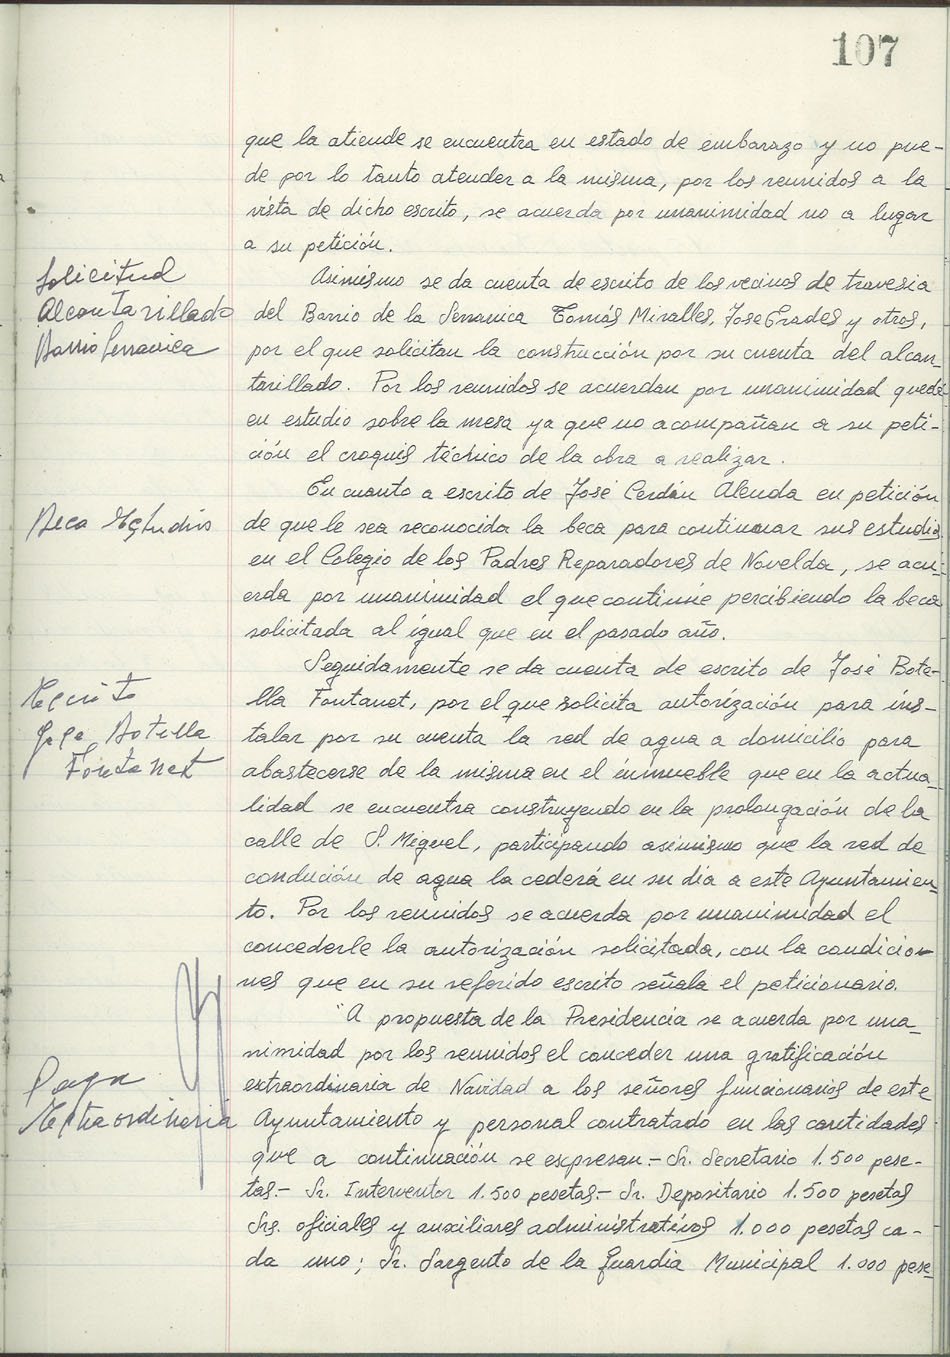 107
que la atiende se encuentra en estado de embarazo y no pue-
de por lo tanto atender a la misma, por los reunidos a la
vista de dicho escrito, se acuerda por unanimidad no a lugar
a su petición.
Solicitud
Alcantarillado
Barrio Serranica
Asimismo se da cuenta de escrito de los vecinos de travesia
del Barrio de la Serranica Tomás Miralles, Jose Prades y otros,
por el que solicitan la construcción por su cuenta del alcan-
tarillado. Por los reunidos se acuerdan por unanimidad quede
en estudio sobre la mesa ya que no acompañan a su peti-
ción el croquis técnico de la obra a realizar.
Beca Estudios
En cuanto a escrito de José Cerdán Alenda en petición
de que le sea reconocida la beca para continuar sus estudios
en el Colegio de los Padres Reparadores de Novelda, se acu-
erda por unanimidad el que continúe percibiendo la beca
solicitada al igual que en el pasado año.
Escrito
Jose Botella
Fontanet
Seguidamente se da cuenta de escrito de José Bote-
lla Fontanet, por el que solicita autorización para ins-
talar por su cuenta la red de agua a domicilio para
abastecerse de la misma en el inmueble que en la actua-
lidad se encuentra construyendo en la prolongación de la
calle de S. Miguel, participando asimismo que la red de
condución de agua la cederá en su dia a este Ayuntamien-
to. Por los reunidos se acuerda por unanimidad el
concederle la autorización solicitada, con la condicio-
nes que en su referido escrito señala el peticionario.
Paga
Extraordinaria
A propuesta de la Presidencia se acuerda por una-
nimidad por los reunidos el conceder una gratificación
extraordinaria de Navidad a los señores funcionarios de este
Ayuntamiento y personal contratado en las cantidades
que a continuación se expresan.- Sr. Secretario 1.500 pese-
tas.- Sr. Interventor 1.500 pesetas.- Sr. Depositario 1.500 pesetas
Srs. oficiales y auxiliares administrativos 1.000 pesetas ca-
da uno; Sr. Sargento de la Guardia Municipal 1.000 pese-